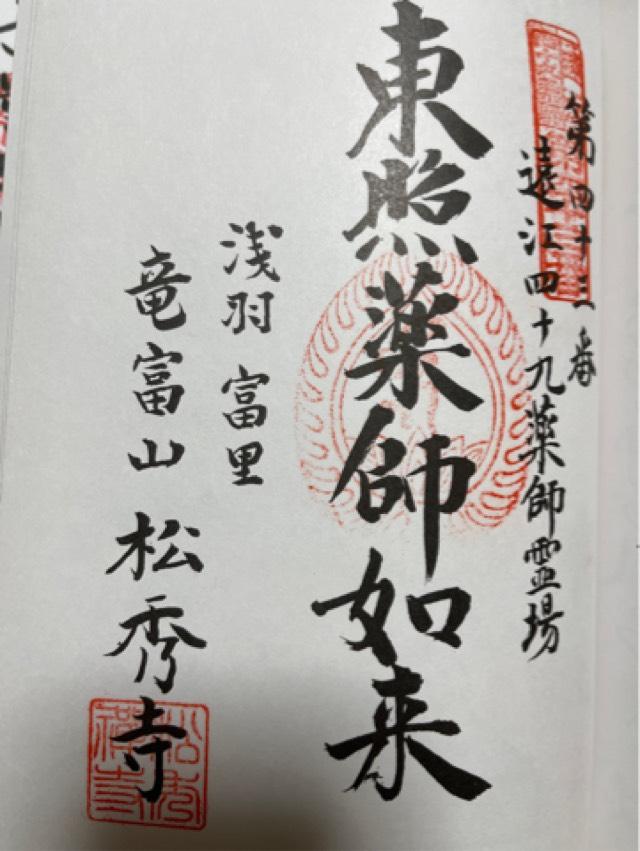 第四十三番
遠江四十九薬師霊場
東照薬師如来
浅羽 富里
竜富山 松秀寺
松秀禅寺